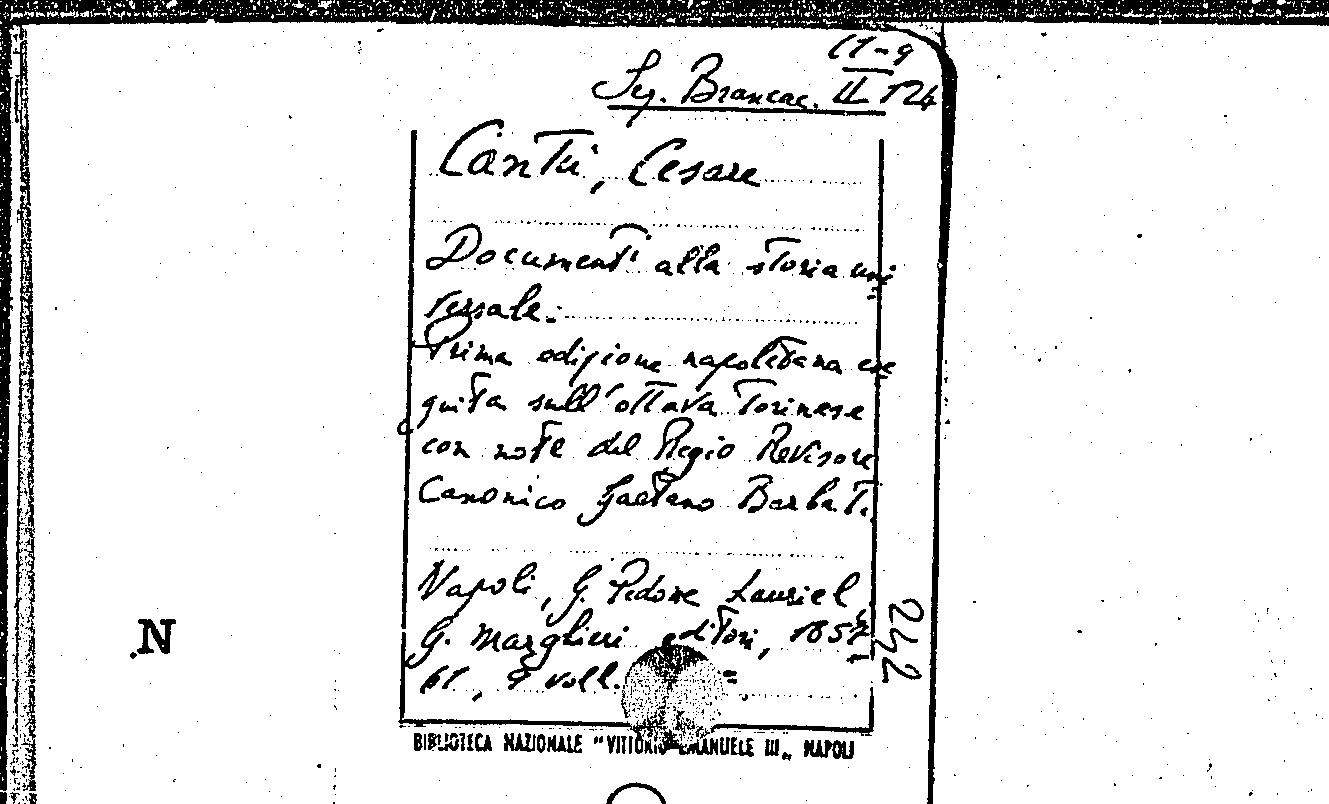 11-9
Seg. Brancac. II 124
Cantù, Cesare
Documenti alla storia uni
versale.
Prima edizione napolitana ese
guita sull'ottava Torinese
con note del Regio Revisore
Canonico Gaetano Barbati.
Napoli, G. Pedone Lauriel
G. Marghieri editori, 1857
61, 9 voll.
242
N
BIBLIOTECA NAZIONALE "VITTORIO EMANUELE III„ NAPOLI